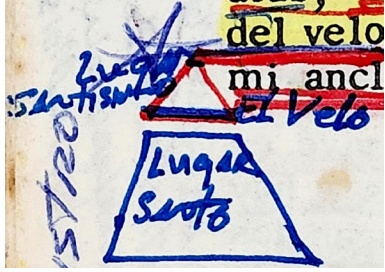 del velo
mi ancl
Lugar
Santismo
El Velo
Lugar
Santo